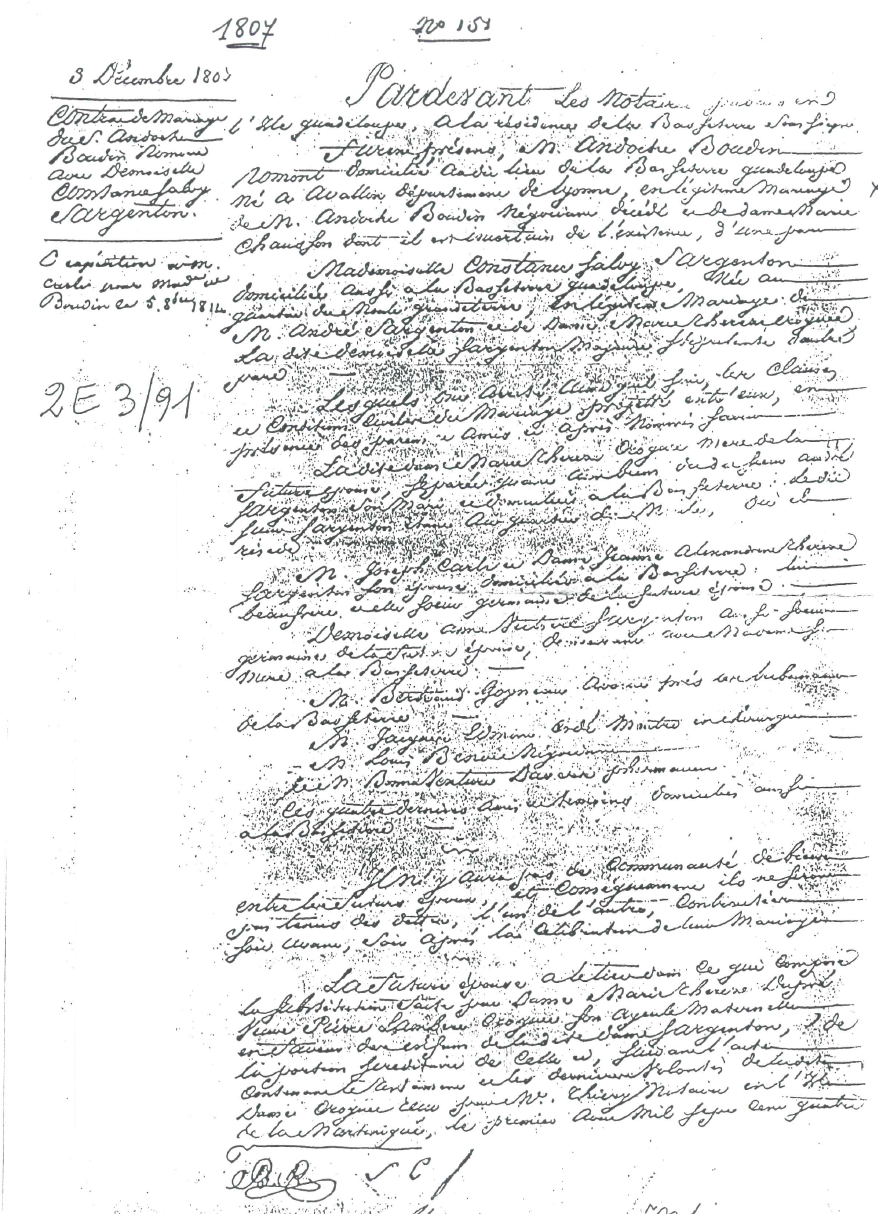 1807
No 151
3 Décembre 1807
Contrat de Mariage
du S. Andoche
Boudin Romont
avec Demoiselle
Constance Salvy
Sargenton.
Expédition
pour Mad
Boudin le 5. 8bre 1814.
2E 3/91
Pardevant Les Notaires
l'Isle guadeloupe, a la résidence de la Basseterre Soussignés
Furent présens, M. Andoche Boudin
Romont domicilié audit lieu de la Basseterre guadeloupe
Né a Avallon département de Lyonne, en légitime Mariage
de M. Andoche Boudin Négociant décédé et de dame Marie
Chausson dont il est incertain de l'éxistence, d'une part
Mademoiselle Constance Salvy Sargenton
domiciliée aussi a la Basseterre guadeloupe, Née au
quartier du Moule grandeterre, en légitime Mariage de
M. André Sargenton et de Dame Marie therese Croquet
La dite demoiselle Sargenton Majeure Stipulante d'autre
part
Lesquels ont arrêté, ainsi qu'il suit, les Clauses
et Conditions Civiles du Mariage projetté entr'eux, en
présence des parens et Amis ci après Nommés savoir
La dite dame Marie therese Croquet Mere de la
future épouse, Séparée quant aux biens du dit Sieur andré
Sargenton Son Mari et domiciliée a la Basseterre: le dit
Sieur Sargenton étant au quartier du où il
réside
M. Joseph Carli et Dame Jeanne Alexandrine therese
Sargenton Son épouse domiciliés a la Basseterre: lui
beaufrere et elle Soeur germaine de la future épouse.
Demoiselle anne Sargenton aussi Soeur
germaine de la future épouse, demeurant avec Madame Sa
Mere a la Basseterre.
M. Bertrand Goyneau Avoué près les tribunaux
de la Basseterre
M. Jacques Edmond Maitre en chirurgie
M. Louis Négociant
et M. Bonnaventure
Ces quatre derniers amis et temoins domiciliés aussi
a la Basseterre
Il n'y aura pas de Communauté de biens
entre les futurs époux, et Conséquemment ils ne seront
pas tenus des dettes, l'un de l'autre, Contractées
soit avant, soit après la Célébration de leur Mariage
La future épouse a le tiers dans Ce qui Compose
la Substitution faite par Dame Marie therese Dupré
Veuve Pierre Lambert Croquet Son Ayeule Maternelle
en faveur des enfans de la dite dame Sargenton, & de
la portion hereditaire de Celle ci, suivant l'acte
Contenant le testament et les dernieres Volontés de la dite
Dame Croquet reçu par Me. Thiery Notaire en l'Isle
de la Martinique, le premier août Mil Sept Cent quatre
B.R. S C